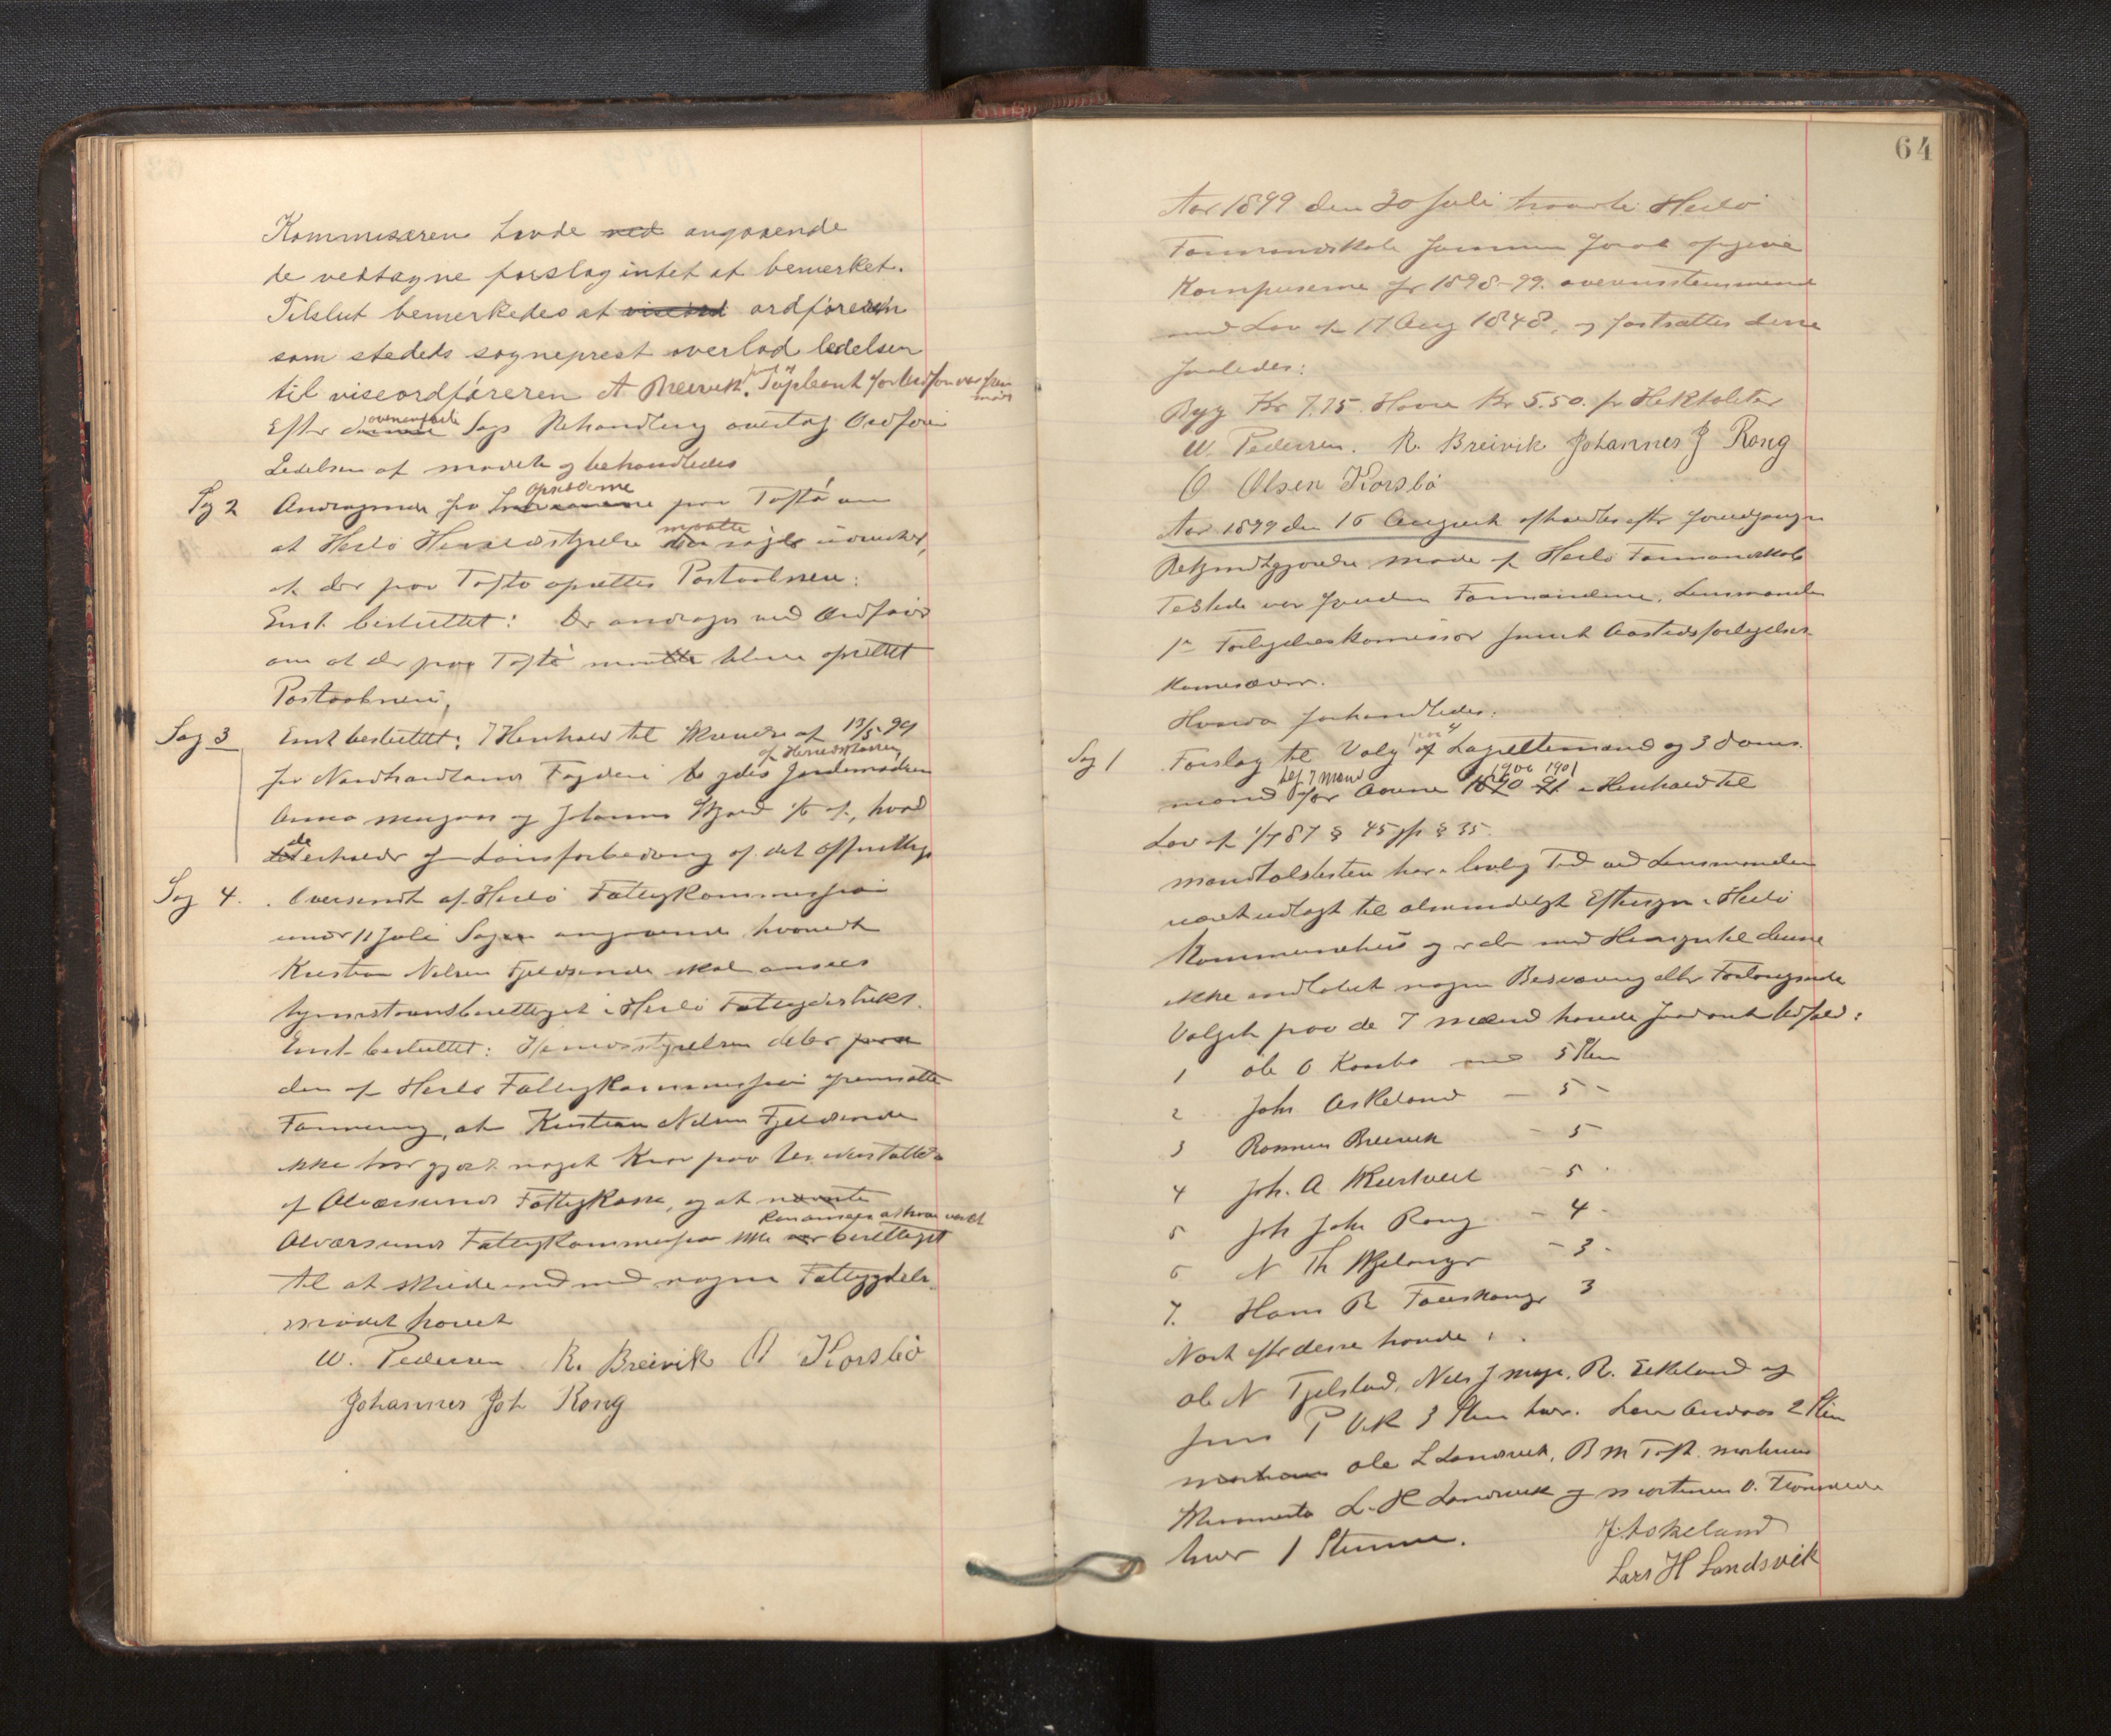 Kommisæren havde ved angaaende
de vedtagne forslag intet at bemerket.
Tilslut bemerkedes at viseord ordføreren
som stedets sogneprest overlod ledelsen
til viseordføreren A Breivik. Suppleant for Ordfører var frem
mødt
Efter denne ovennævnte Sags Behandling overtog Ordfører
Ledelsen af mødet og behandledes
Sag 2 Andragende fra Opsidderne paa Toftø om
at Herlø Herredsstyrelse maatte
at der paa Toftø oprettes Postaabneri:
Enst. besluttet: Der andrages ved Ordfører
om at der paa Toftø maatte blive oprettet
Postaabneri,
Sag 3 Enst besluttet: I Henhold til Skrivelse af 13/5 99
fra Nordhordlands Fogderi af Herredskassen Jordemødrene
Anna Magnus og Johanne Skjold 1/2 af, hvad
de erholder i Lønsforbedring af det Offentlige
Sag 4. Oversendt af Herlø Fattigkommission
under 11 Juli Sagen angaaende hvorvidt
Kristian Nilsen Fjeldsende skal ansees
hjemstavnsberettiget i Herlø Fattigdistrikt.
Enst. besluttet: Herredsstyrelsen deler paa
den af Herlø Fattigkommission fremsatte
Formening, at Kristian Nilsen Fjeldsende
ikke har gjort noget Krav paa Understøttelse
af Alværsunds Fattigkasse, og at nævnte
kan ansees at have været
Alværsunds Fattigkommission ikke var berettiget
til at skride ind med nogen Fattighjelp.
mødet hævet
W. Pedersen R. Breivik O Korsbø
Johannes Joh Rong
64
Aar 1899 den 20 Juli traadte Herlø
Formandskab sammen forat opgive
Kornpriserne for 1898-99. overensstemmende
med Lov af 17 Aug 1848, og fastsattes disse
saaledes:
Byg Kr 7.75. Havre Kr 5.50. pr Hektoliter
W. Pedersen. R. Breivik Johannes J Rong
O Olsen Korsbø
Aar 1899 den 16 August afholdtes efter foregaaende
Bekjendtgjørelse møde af Herlø Formandskab
Tilstede var foruden Formændene, Lensmanden
1ste Forligelseskomissær samt Aastedsforligelses
komissærer.
Hvorda forhandledes:
Sag 1 Forslag til Valg paa af Lagrettemænd og 3 doms.
mænd 7 Mænd for Aarene 1890 91 1900 1901 i Henhold til
Lov af 1/7 87 § 45 jfr § 35.
Mandtalslisten har i lovlig Tid ved Lensmanden
været udlagt til almindeligt Eftersyn i Herlø
Kommunehus og er der med Hensyn til denne
ikke indløbet nogen Besværing eller Forlangende
Valget paa de 7 Mænd havde saadant Udfald:
1 Ole O Korsbø med 5 Stem
2 Johs Askeland — 5 -
3 Rasmus Breivik - 5
4 Joh. A - 5
5 Joh Johs Rong - 4 -
6 N Th - 3 -
7. Hans R 3
Næst efter disse havde:
Ole N Tjelstad, Nils J R. Eikeland og
Jens P Vik 3 Stem hver. Lars 2 Stem
Ole L Landsvik, B M Toft. Martinus
L. H Landsvik og Martinus O.
hver 1 Stemme.
J. Askeland
Lars H Landsvik